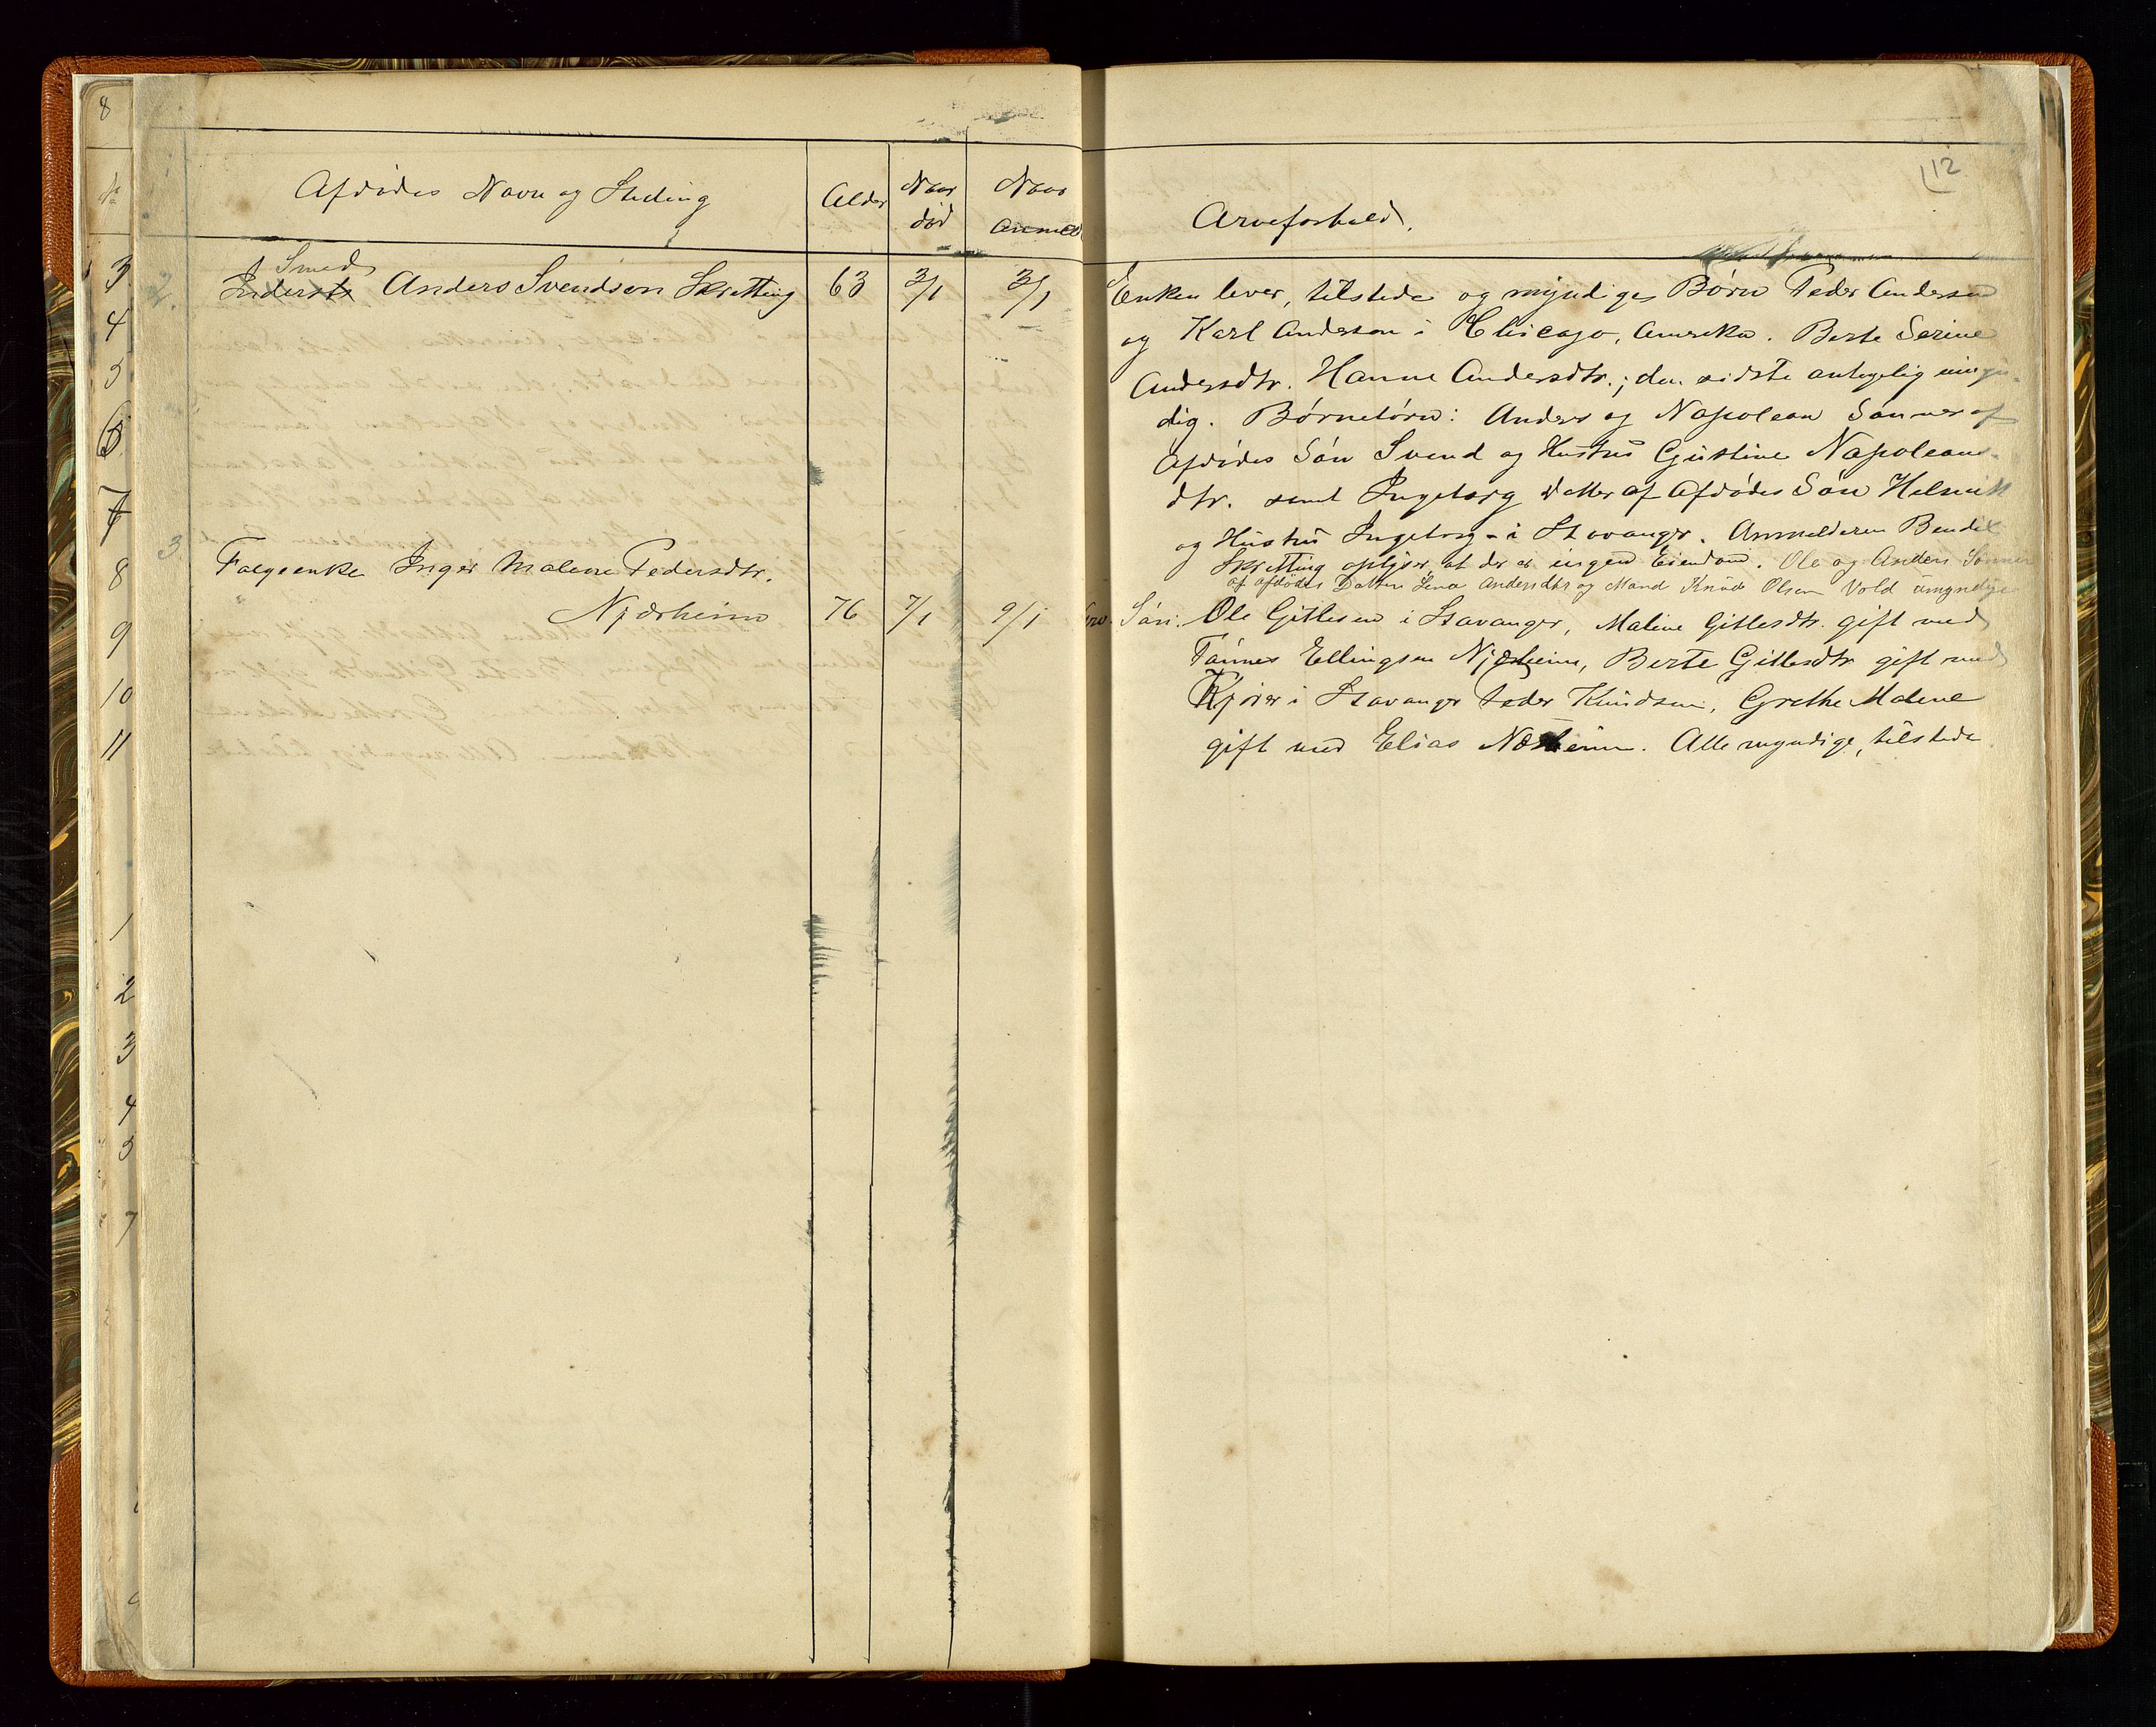 12
Afdödes Navn og Stilling
Alder
Naar död
Naar Anmeld
Arveforhold.
2. Inderst Smed Anders Svendsen Skretting 63 3/1 3/1
Enken lever, tilstede og myndige Börn Peder Andersen
og Karl Andersen i Chicago, Amerika. Berte Serine
Andersdtr. Hanne Andersdtr.; den sidste antagelig umyn-
dig. Börnebörn: Anders og Napoleon Sönner af
Afdödes Sön Svend og Hustru Gustine Napoleons-
dtr. samt Ingeborg Datter af Afdödes Sön Helmik
og Hustru Ingeborg i Stavanger. Anmelderen Bendik
Skretting oplyser, at der er ingen Eiendom. Ole og Anders Sönner
af afdödes Datter Lena Andersdtr og Mand Knud Olsen Vold umyndige
3. Folgeenke Inger Malene Pedersdtr.
Njærheim 76 7/1 9/1
Sön: Ole Gitlesen i Stavanger, Maline Gitlesdtr. gift med
Tönnes Ellingsen Njærheim, Berte Gitlesdtr gift med
Kjörer i Stavanger Peder Knudsen, Grethe Malene
gift med Elias Nærheim. Alle myndige, tilstede
8
3
4
5
6
7
8
9
10
11
1
2
3
4
5
7